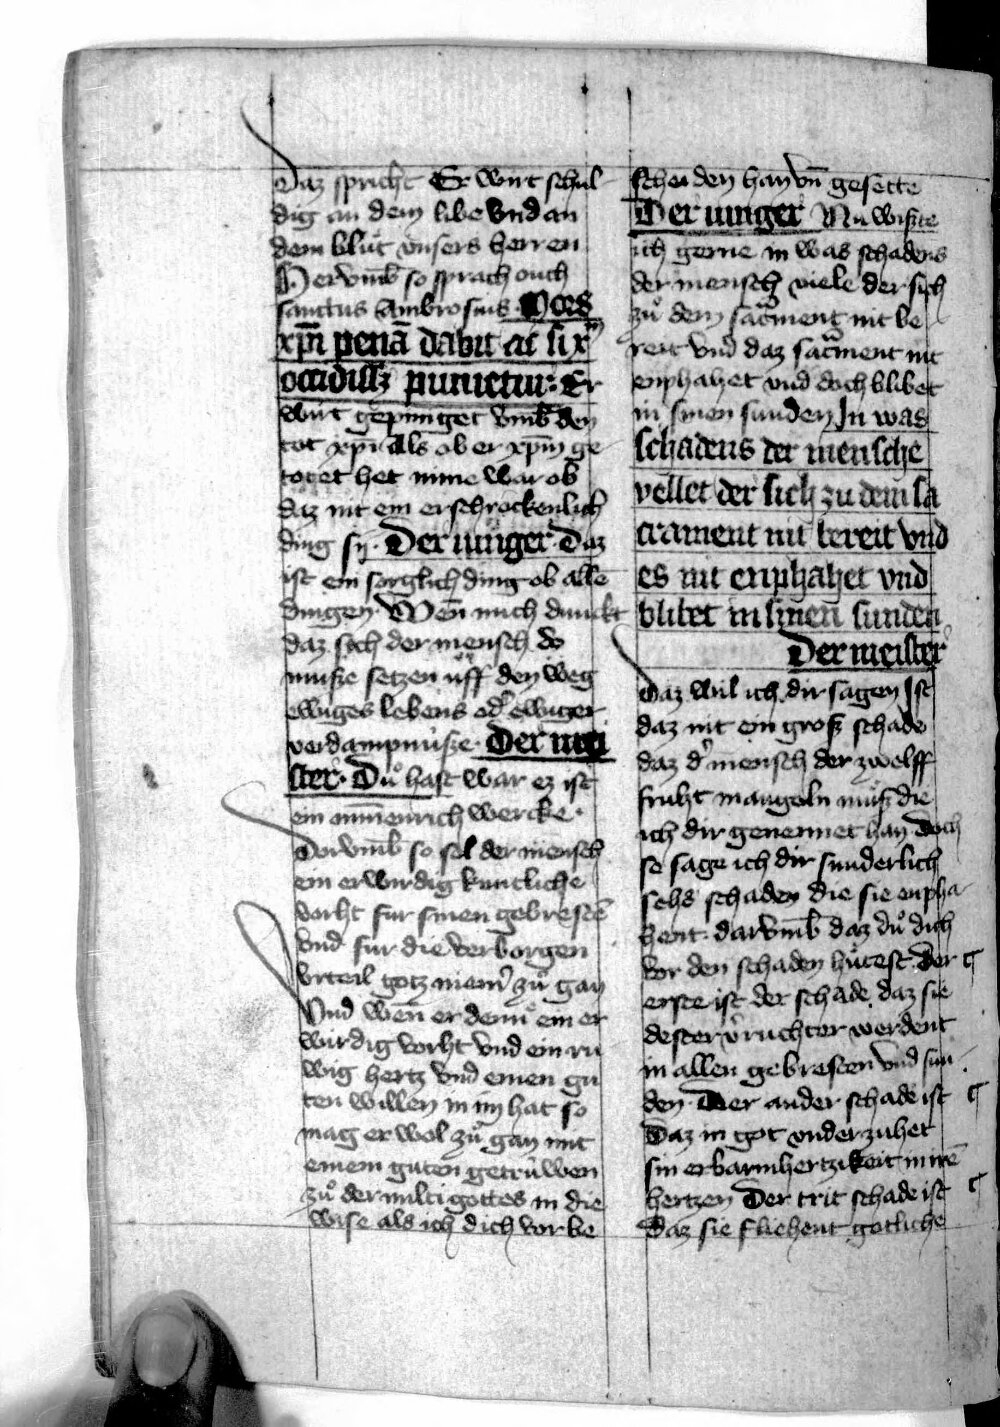 Daz spricht Er wirt schul
dig an dem libe vnd an
dem blůt vnsers herren
Hervm̄b so sprach ouch
sanctus Ambrosius. Mors
xp̄i penā dabit ac si xp̄m
occidissz punietur: Er
wirt gepiniget vm̄b den
tot xp̄i als ob er xp̄m ge
totet het nime war ob
daz nit ein erschrockenlich
ding sij. Der iunger. Daz
ist ein sorglich ding ob allē
dingen. Wen̄ mich dunckt
daz sich der mensch do
muͦsze setzen uff den weg
ewiges lebens od' ewiger
verdampnúsze. Der mei
ster. Du hast war ez ist
ein wercke.
Dorvm̄b so sol der mensch
ein erwirdig kintliche
vorht fur sinen gebrestē
vnd fur die verborgen
vrteil gotz niem' zů gan
Vnd wen̄ er denn ein er
wirdig vorht vnd ein ru
wig hertz vnd einen gu
ten willen in im hat so
mag er wol zů gan mit
einem guten getrúwen
zů der milti gottes in die
wise als ich dich vor be
scheiden han vn̄ gesette
Der iunger Nu wiszte
ich gerne in was schadens
der mensch viele der sich
zů dem sacr̄ment nit be
reit vnd daz sacr̄ment nit
enphahet vnd doch blibet
in sinen sunden In was
schadens der mensche
vellet der sich zu dem sa
crament nit bereit vnd
es nit enphahet vnd
blibet in sinen sunden
Der meister
Daz wil ich dir sagen Ist
daz nit ein grosz schade
daz d' mensch der zwelff
fruht mangeln můsz die
ich dir genennet han doch
so sage ich dir sunderlich
sehs schaden die sie enpha
hent. darvm̄b daz dů dich
vor den schaden hůtest. Der
erste ist der schade daz sie
dester v'ruchter werdent
in allen gebresten vnd sun
den. Der ander schade ist
Daz in got vnderzuhet
sin erbarmhertzikeit in irē
hertzen Der trit schade ist
daz sie fliehent gotliche